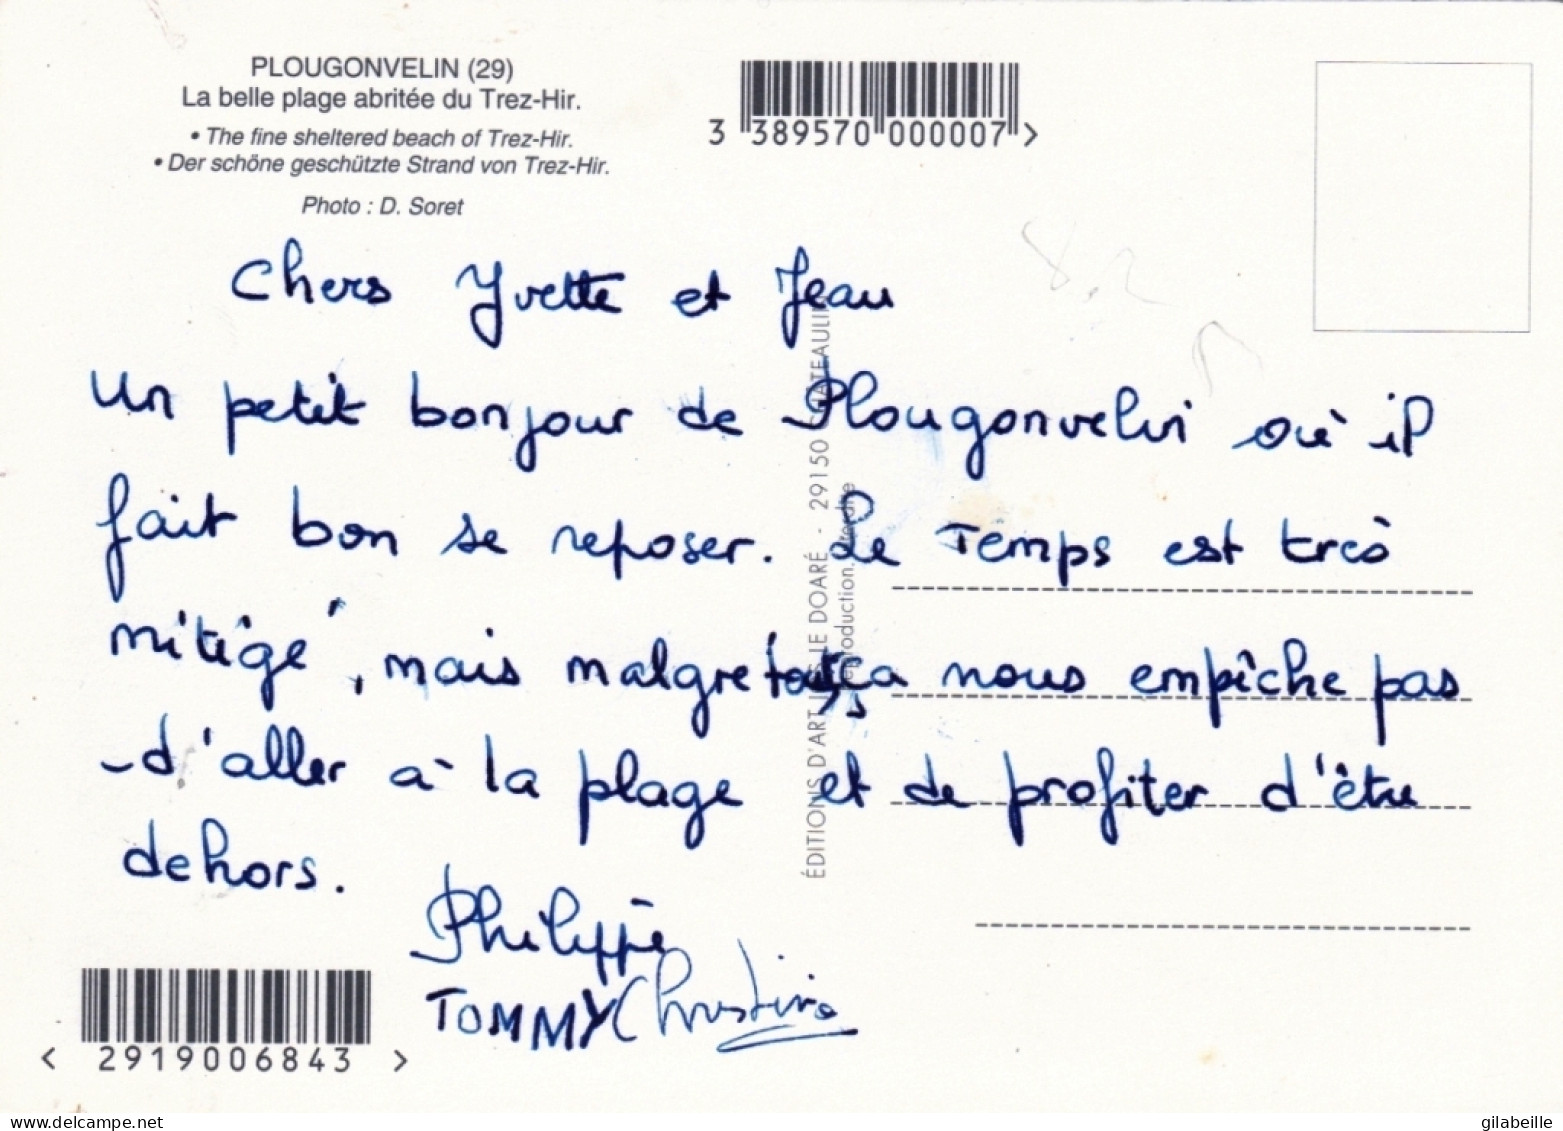 PLOUGONVELIN (29)
La belle plage abritée du Trez-Hir.
• The fine sheltered beach of Trez-Hir.
• Der schöne geschützte Strand von Trez-Hir.
Photo : D. Soret
3 389570 000007 >
Chers Yvette et Jean
Un petit bonjour de Plougonvelin où il
fait bon se reposer. Le Temps est très
mitigé, mais malgré ça nous empêche pas
d'aller à la plage et de profiter d'être
dehors.
Philippe
TOMMY Christine
ÉDITIONS D'ART JOS LE DOARÉ - 29150 CHÂTEAULIN
Reproduction interdite
< 2919006843 >
www.delcampe.net
gilabeille